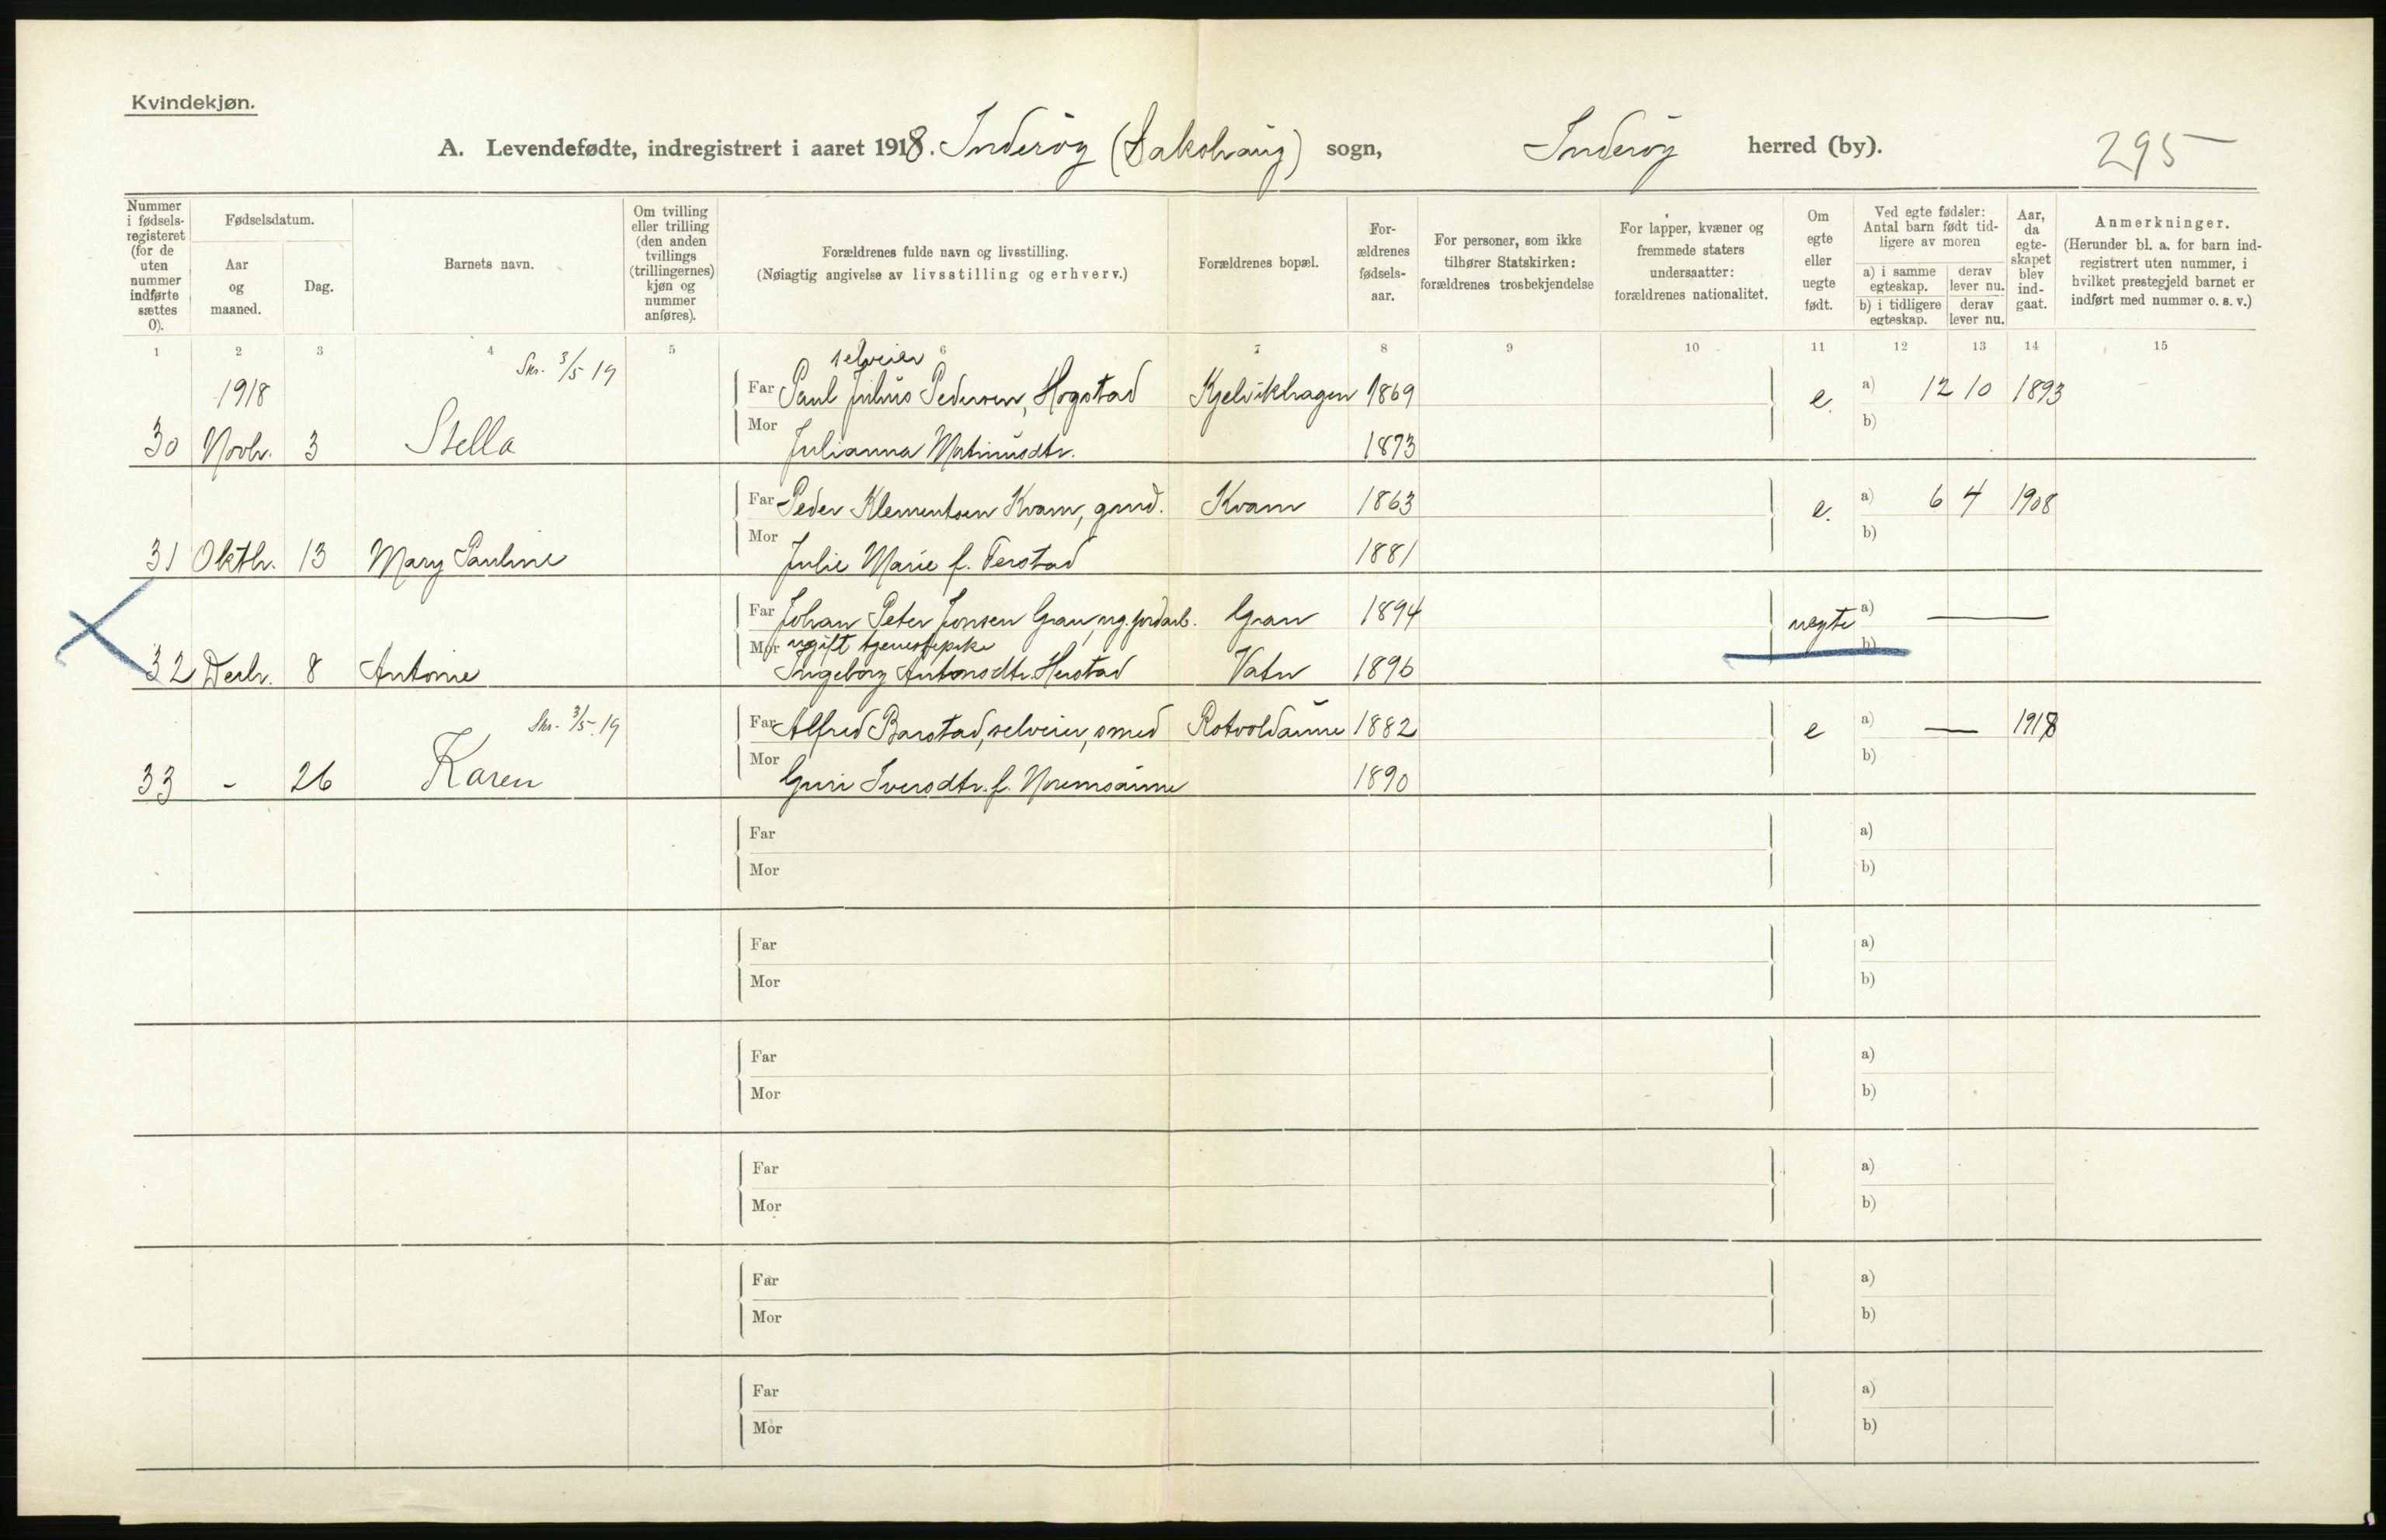 Kvindekjøn.
A. Levendefødte, indregistrert i aaret 1918. Inderøy (Sakshaug) sogn, Inderøy herred (by). 295
Nummer i fødsels-registeret (for de uten nummer indførte sættes 0).
Fødselsdatum.
Aar og maaned.
Dag.
Barnets navn.
Om tvilling eller trilling (den anden tvillings (trillingernes) kjøn og nummer anføres).
Forældrenes fulde navn og livsstilling.
(Nøiagtig angivelse av livsstilling og erhverv.)
Forældrenes bopæl.
For-ældrenes fødsels-aar.
For personer, som ikke tilhører Statskirken: forældrenes trosbekjendelse
For lapper, kvæner og fremmede staters undersaatter: forældrenes nationalitet.
Om egte eller uegte født.
Ved egte fødsler: Antal barn født tid-ligere av moren
a) i samme egteskap.
derav lever nu.
b) i tidligere egteskap.
derav lever nu.
Aar, da egte-skapet blev ind-gaat.
Anmerkninger.
(Herunder bl. a. for barn ind-registrert uten nummer, i hvilket prestegjeld barnet er indført med nummer o. s. v.)
1 2 3 4 5 6 7 8 9 10 11 12 13 14 15
Skr. 3/5 19
selveier
1918 Far Paul Julius Pedersen, Hogstad Kjelvikhagen 1869 e. a) 12 10 1893
30 Novbr. 3 Stella Mor Julianna Matinusdtr. 1873 b)
Far Peder Klementsen Kvam, grmd. Kvam 1863 e. a) 6 4 1908
31 Oktbr. 13 Mary Pauline Mor Julie Marie f. Ferstad 1881 b)
Far Johan Peter Jonsen Gran, ug. jordarb. Gran 1894 uegte a) —
ugift tjenestepike
32 Desbr. 8 Antonie Mor Ingeborg Antonsdtr. Herstad Vatn 1896 b)
Skr. 3/5. 19
Far Alfred Barstad, selveier, smed Rotvoldaune 1882 e a) — 1918
33 - 26 Karen Mor Guri Iversdtr. f. Noremsaune 1890 b)
Far a)
Mor b)
Far a)
Mor b)
Far a)
Mor b)
Far a)
Mor b)
Far a)
Mor b)
Far a)
Mor b)